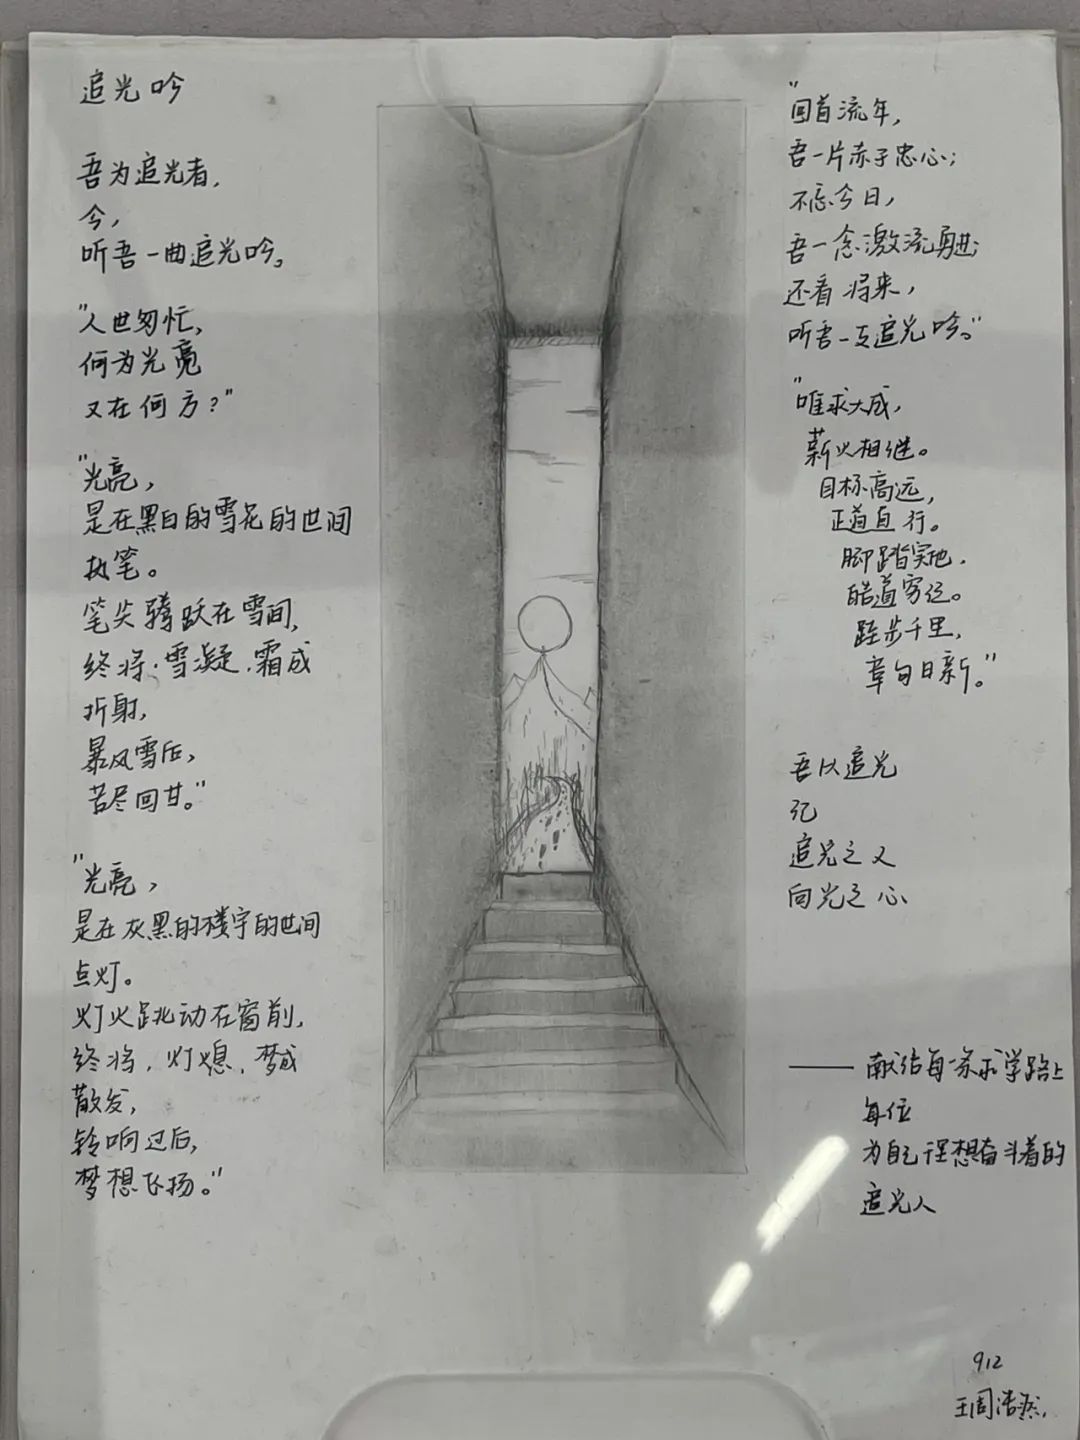 追光吟
吾为追光者，
今，
听吾一曲追光吟。
"人世匆忙，
何为光亮
又在何方？"
"光亮，
是在黑白的雪花的世间
执笔。
笔尖腾跃在雪间，
终将．雪凝．霜成
折射，
暴风雪后，
苦尽回甘。"
"光亮，
是在灰黑的楼宇的世间
点灯。
灯火跳动在窗前，
终将．灯熄．梦成
散发，
铃响过后，
梦想飞扬。"
"回首流年，
吾一片赤子忠心；
不忘今日，
吾一念激流勇进；
还看将来，
听吾一支追光吟。"
"唯求大成，
薪火相继。
目标高远，
正道直行。
脚踏实地，
皓道穷经。
跬步千里，
章句日新。"
吾以追光
记
追光之义
向光之心
——献给每一条求学路上
每位
为自己理想奋斗着的
追光人
912
王周浩然